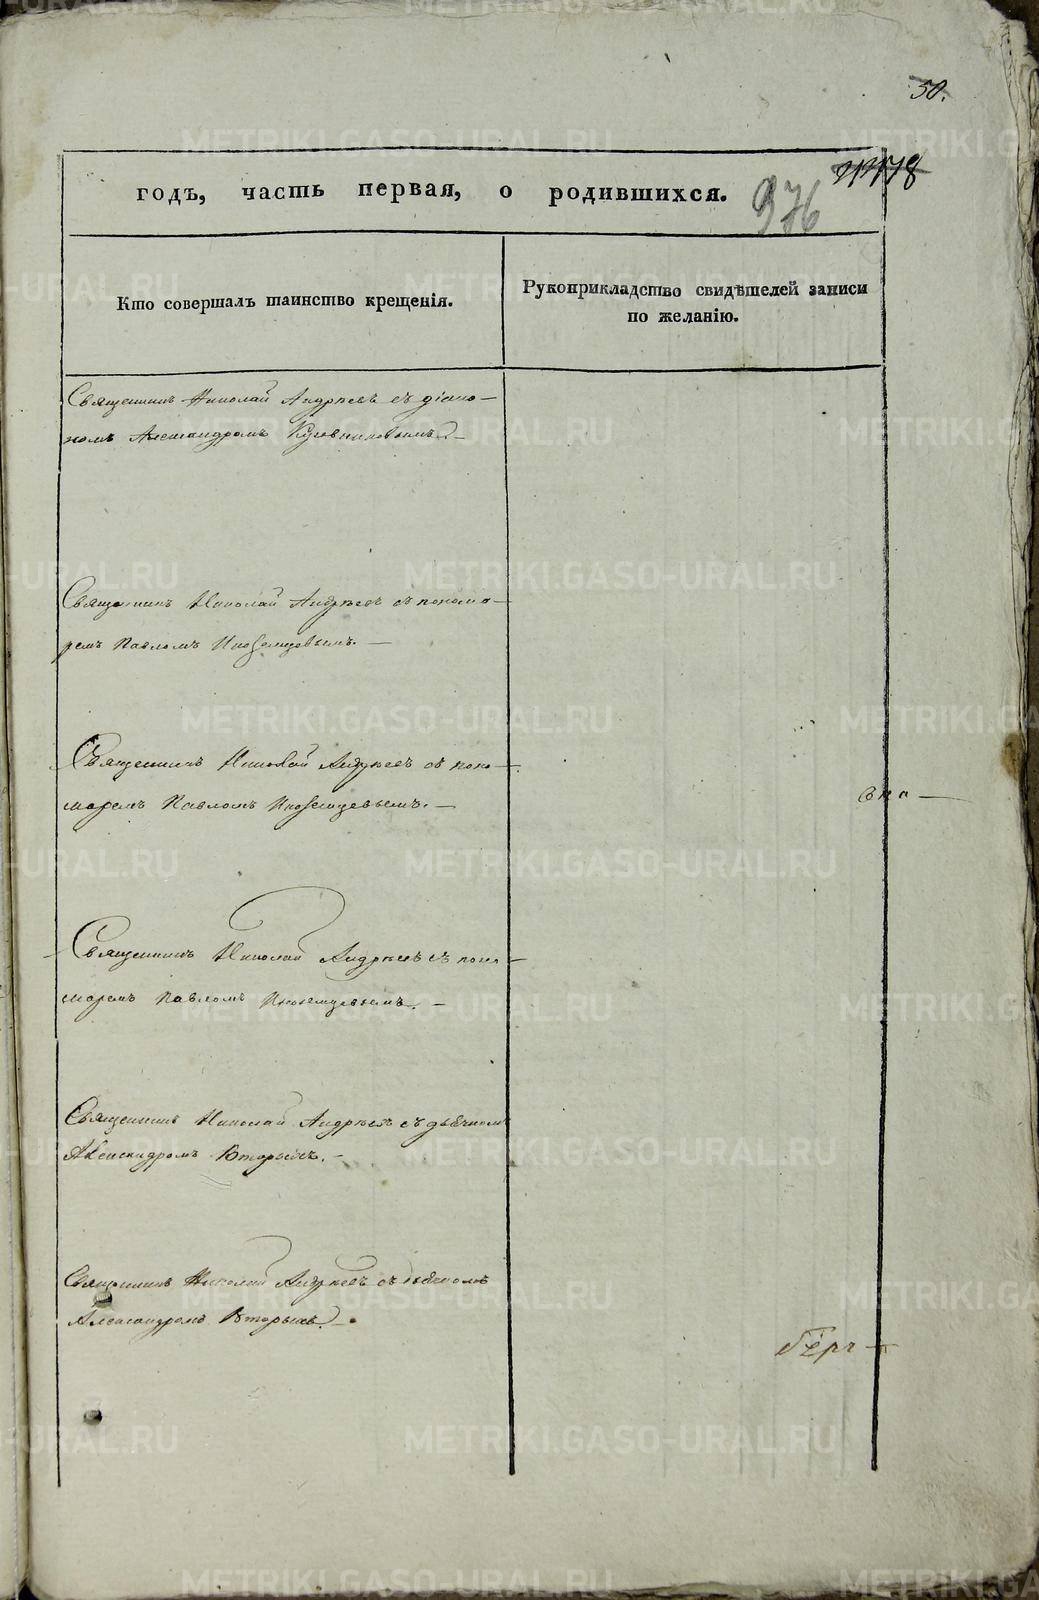 50.
976
годъ, часть первая, о родившихся.
Кто совершалъ таинство крещенія.
Рукоприкладство свидѣтелей записи
по желанію.
Священникъ Николай Андреевъ съ діако-
номъ Александромъ
Священникъ Николай Андреевъ съ понома-
ремъ Павломъ Иноземцовымъ. —
Священникъ Николай Андреевъ съ поно-
маремъ Павломъ Иноземцевымъ. —
Священникъ Николай Андреевъ съ поно-
маремъ Павломъ Иноземцевымъ. —
Священникъ Николай Андреевъ съ дьячкомъ
Александромъ Вторымъ. —
Священникъ Николай Андреевъ съ дьячкомъ
Александромъ Вторымъ. —
METRIKI.GASO-URAL.RU